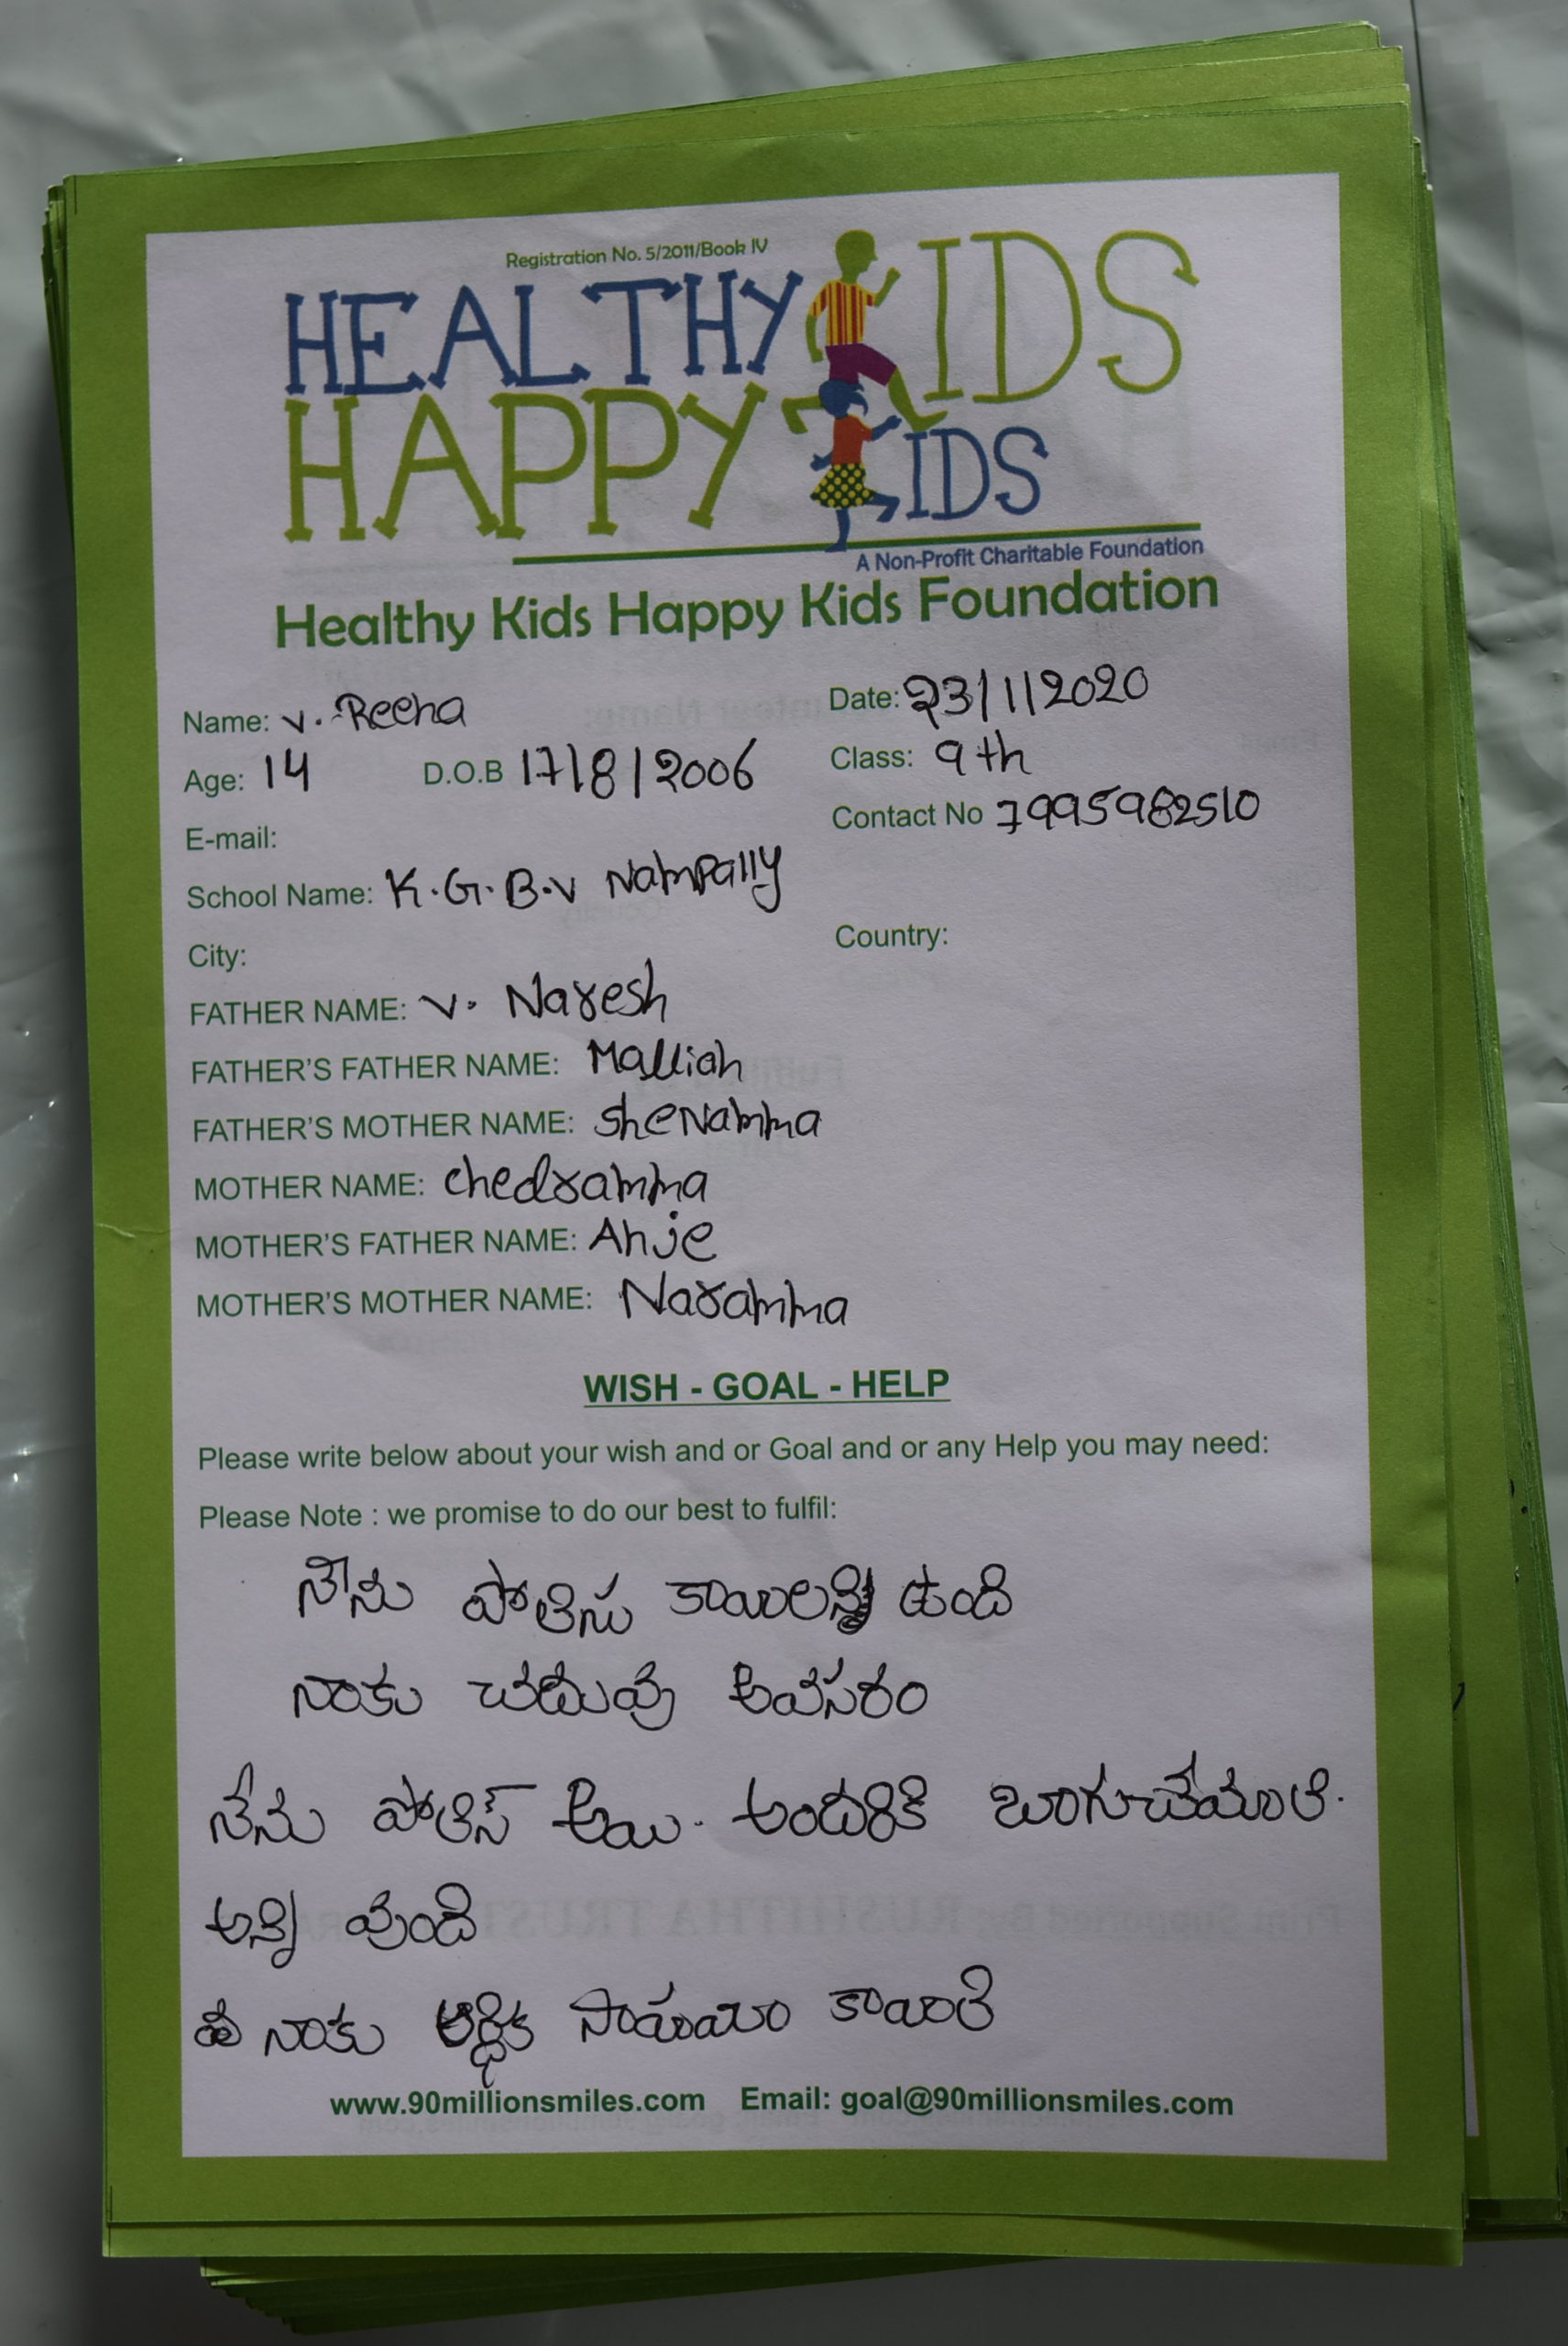 Registration No. 5/2011/Book IV
HEALTHY KIDS
HAPPY KIDS
A Non-Profit Charitable Foundation
Healthy Kids Happy Kids Foundation
Name: V. Reena Date: 23/1/2020
Age: 14 D.O.B 17/8/2006 Class: 9th
E-mail: Contact No 7995982510
School Name: K.G.B.V Nampally
City: Country:
FATHER NAME: V. Naresh
FATHER'S FATHER NAME: Malliah
FATHER'S MOTHER NAME: Shenamma
MOTHER NAME: Chedramma
MOTHER'S FATHER NAME: Anje
MOTHER'S MOTHER NAME: Naramma
WISH - GOAL - HELP
Please write below about your wish and or Goal and or any Help you may need:
Please Note : we promise to do our best to fulfil:
నౌను పోలిసు కాయిలన్ని ఉంది
నాకు చదువు అవసరం
నేను పోలిస్ అయి. అందరికి బాగుచేయాలి.
అన్ని వుంది
నాకు ఆర్థిక సాహయం కాయిలి
www.90millionsmiles.com Email: goal@90millionsmiles.com